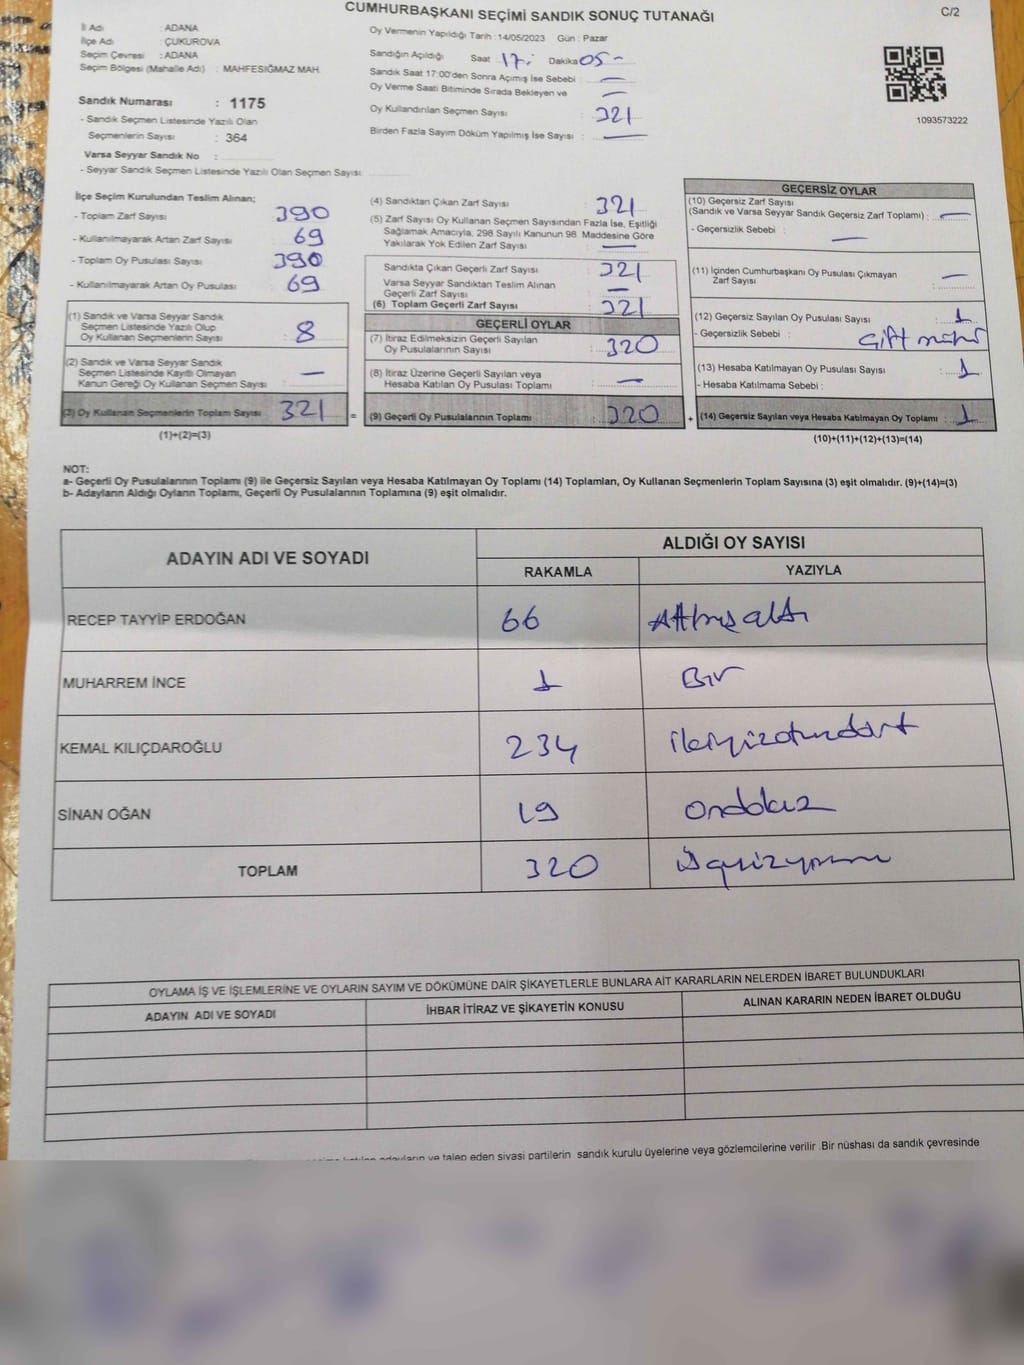 CUMHURBAŞKANI SEÇİMİ SANDIK SONUÇ TUTANAĞI
C/2
İl Adı : ADANA
İlçe Adı : ÇUKUROVA
Seçim Çevresi : ADANA
Seçim Bölgesi (Mahalle Adı) : MAHFESIĞMAZ MAH.
Sandık Numarası : 1175
- Sandık Seçmen Listesinde Yazılı Olan
Seçmenlerin Sayısı : 364
Varsa Seyyar Sandık No :
- Seyyar Sandık Seçmen Listesinde Yazılı Olan Seçmen Sayısı:
Oy Vermenin Yapıldığı Tarih :14/05/2023 Gün : Pazar
Sandığın Açıldığı Saat 17. Dakika 05 -
Sandık Saat 17:00'den Sonra Açımış İse Sebebi : —
Oy Verme Saati Bitiminde Sırada Bekleyen ve —
Oy Kullandırılan Seçmen Sayısı : 321
Birden Fazla Sayım Döküm Yapılmış İse Sayısı : —
1093573222
İlçe Seçim Kurulundan Teslim Alınan;
- Toplam Zarf Sayısı : 390
- Kullanılmayarak Artan Zarf Sayısı : 69
- Toplam Oy Pusulası Sayısı : 390
- Kullanılmayarak Artan Oy Pusulası : 69
(1) Sandık ve Varsa Seyyar Sandık
Seçmen Listesinde Yazılı Olup
Oy Kullanan Seçmenlerin Sayısı : 8
(2) Sandık ve Varsa Seyyar Sandık
Seçmen Listesinde Kayıtlı Olmayan
Kanun Gereği Oy Kullanan Seçmen Sayısı : —
(3) Oy Kullanan Seçmenlerin Toplam Sayısı : 321 =
(1)+(2)=(3)
(4) Sandıktan Çıkan Zarf Sayısı : 321
(5) Zarf Sayısı Oy Kullanan Seçmen Sayısından Fazla İse, Eşitliği
Sağlamak Amacıyla, 298 Sayılı Kanunun 98. Maddesine Göre
Yakılarak Yok Edilen Zarf Sayısı : —
Sandıkta Çıkan Geçerli Zarf Sayısı : 321
Varsa Seyyar Sandıktan Teslim Alınan
Geçerli Zarf Sayısı : —
(6) Toplam Geçerli Zarf Sayısı : 321
GEÇERLİ OYLAR
(7) İtiraz Edilmeksizin Geçerli Sayılan
Oy Pusulalarının Sayısı : 320
(8) İtiraz Üzerine Geçerli Sayılan veya
Hesaba Katılan Oy Pusulası Toplamı : —
(9) Geçerli Oy Pusulalarının Toplamı : 320 +
GEÇERSİZ OYLAR
(10) Geçersiz Zarf Sayısı
(Sandık ve Varsa Seyyar Sandık Geçersiz Zarf Toplamı) : —
- Geçersizlik Sebebi : —
(11) İçinden Cumhurbaşkanı Oy Pusulası Çıkmayan
Zarf Sayısı : —
(12) Geçersiz Sayılan Oy Pusulası Sayısı : 1
- Geçersizlik Sebebi : Çift mühür
(13) Hesaba Katılmayan Oy Pusulası Sayısı : 1
- Hesaba Katılmama Sebebi :
(14) Geçersiz Sayılan veya Hesaba Katılmayan Oy Toplamı : 1
(10)+(11)+(12)+(13)=(14)
NOT:
a- Geçerli Oy Pusulalarının Toplamı (9) ile Geçersiz Sayılan veya Hesaba Katılmayan Oy Toplamı (14) Toplamları, Oy Kullanan Seçmenlerin Toplam Sayısına (3) eşit olmalıdır. (9)+(14)=(3)
b- Adayların Aldığı Oyların Toplamı, Geçerli Oy Pusulalarının Toplamına (9) eşit olmalıdır.
ADAYIN ADI VE SOYADI
ALDIĞI OY SAYISI
RAKAMLA YAZIYLA
RECEP TAYYİP ERDOĞAN 66 Altmışaltı
MUHARREM İNCE 1 Bir
KEMAL KILIÇDAROĞLU 234 ikiyüzotuzdört
SİNAN OĞAN 19 Ondokuz
TOPLAM 320 Üçyüzyirmi
OYLAMA İŞ VE İŞLEMLERİNE VE OYLARIN SAYIM VE DÖKÜMÜNE DAİR ŞİKAYETLERLE BUNLARA AİT KARARLARIN NELERDEN İBARET BULUNDUKLARI
ADAYIN ADI VE SOYADI İHBAR İTİRAZ VE ŞİKAYETİN KONUSU ALINAN KARARIN NEDEN İBARET OLDUĞU
adayların ve talep eden siyasi partilerin sandık kurulu üyelerine veya gözlemcilerine verilir .Bir nüshası da sandık çevresinde